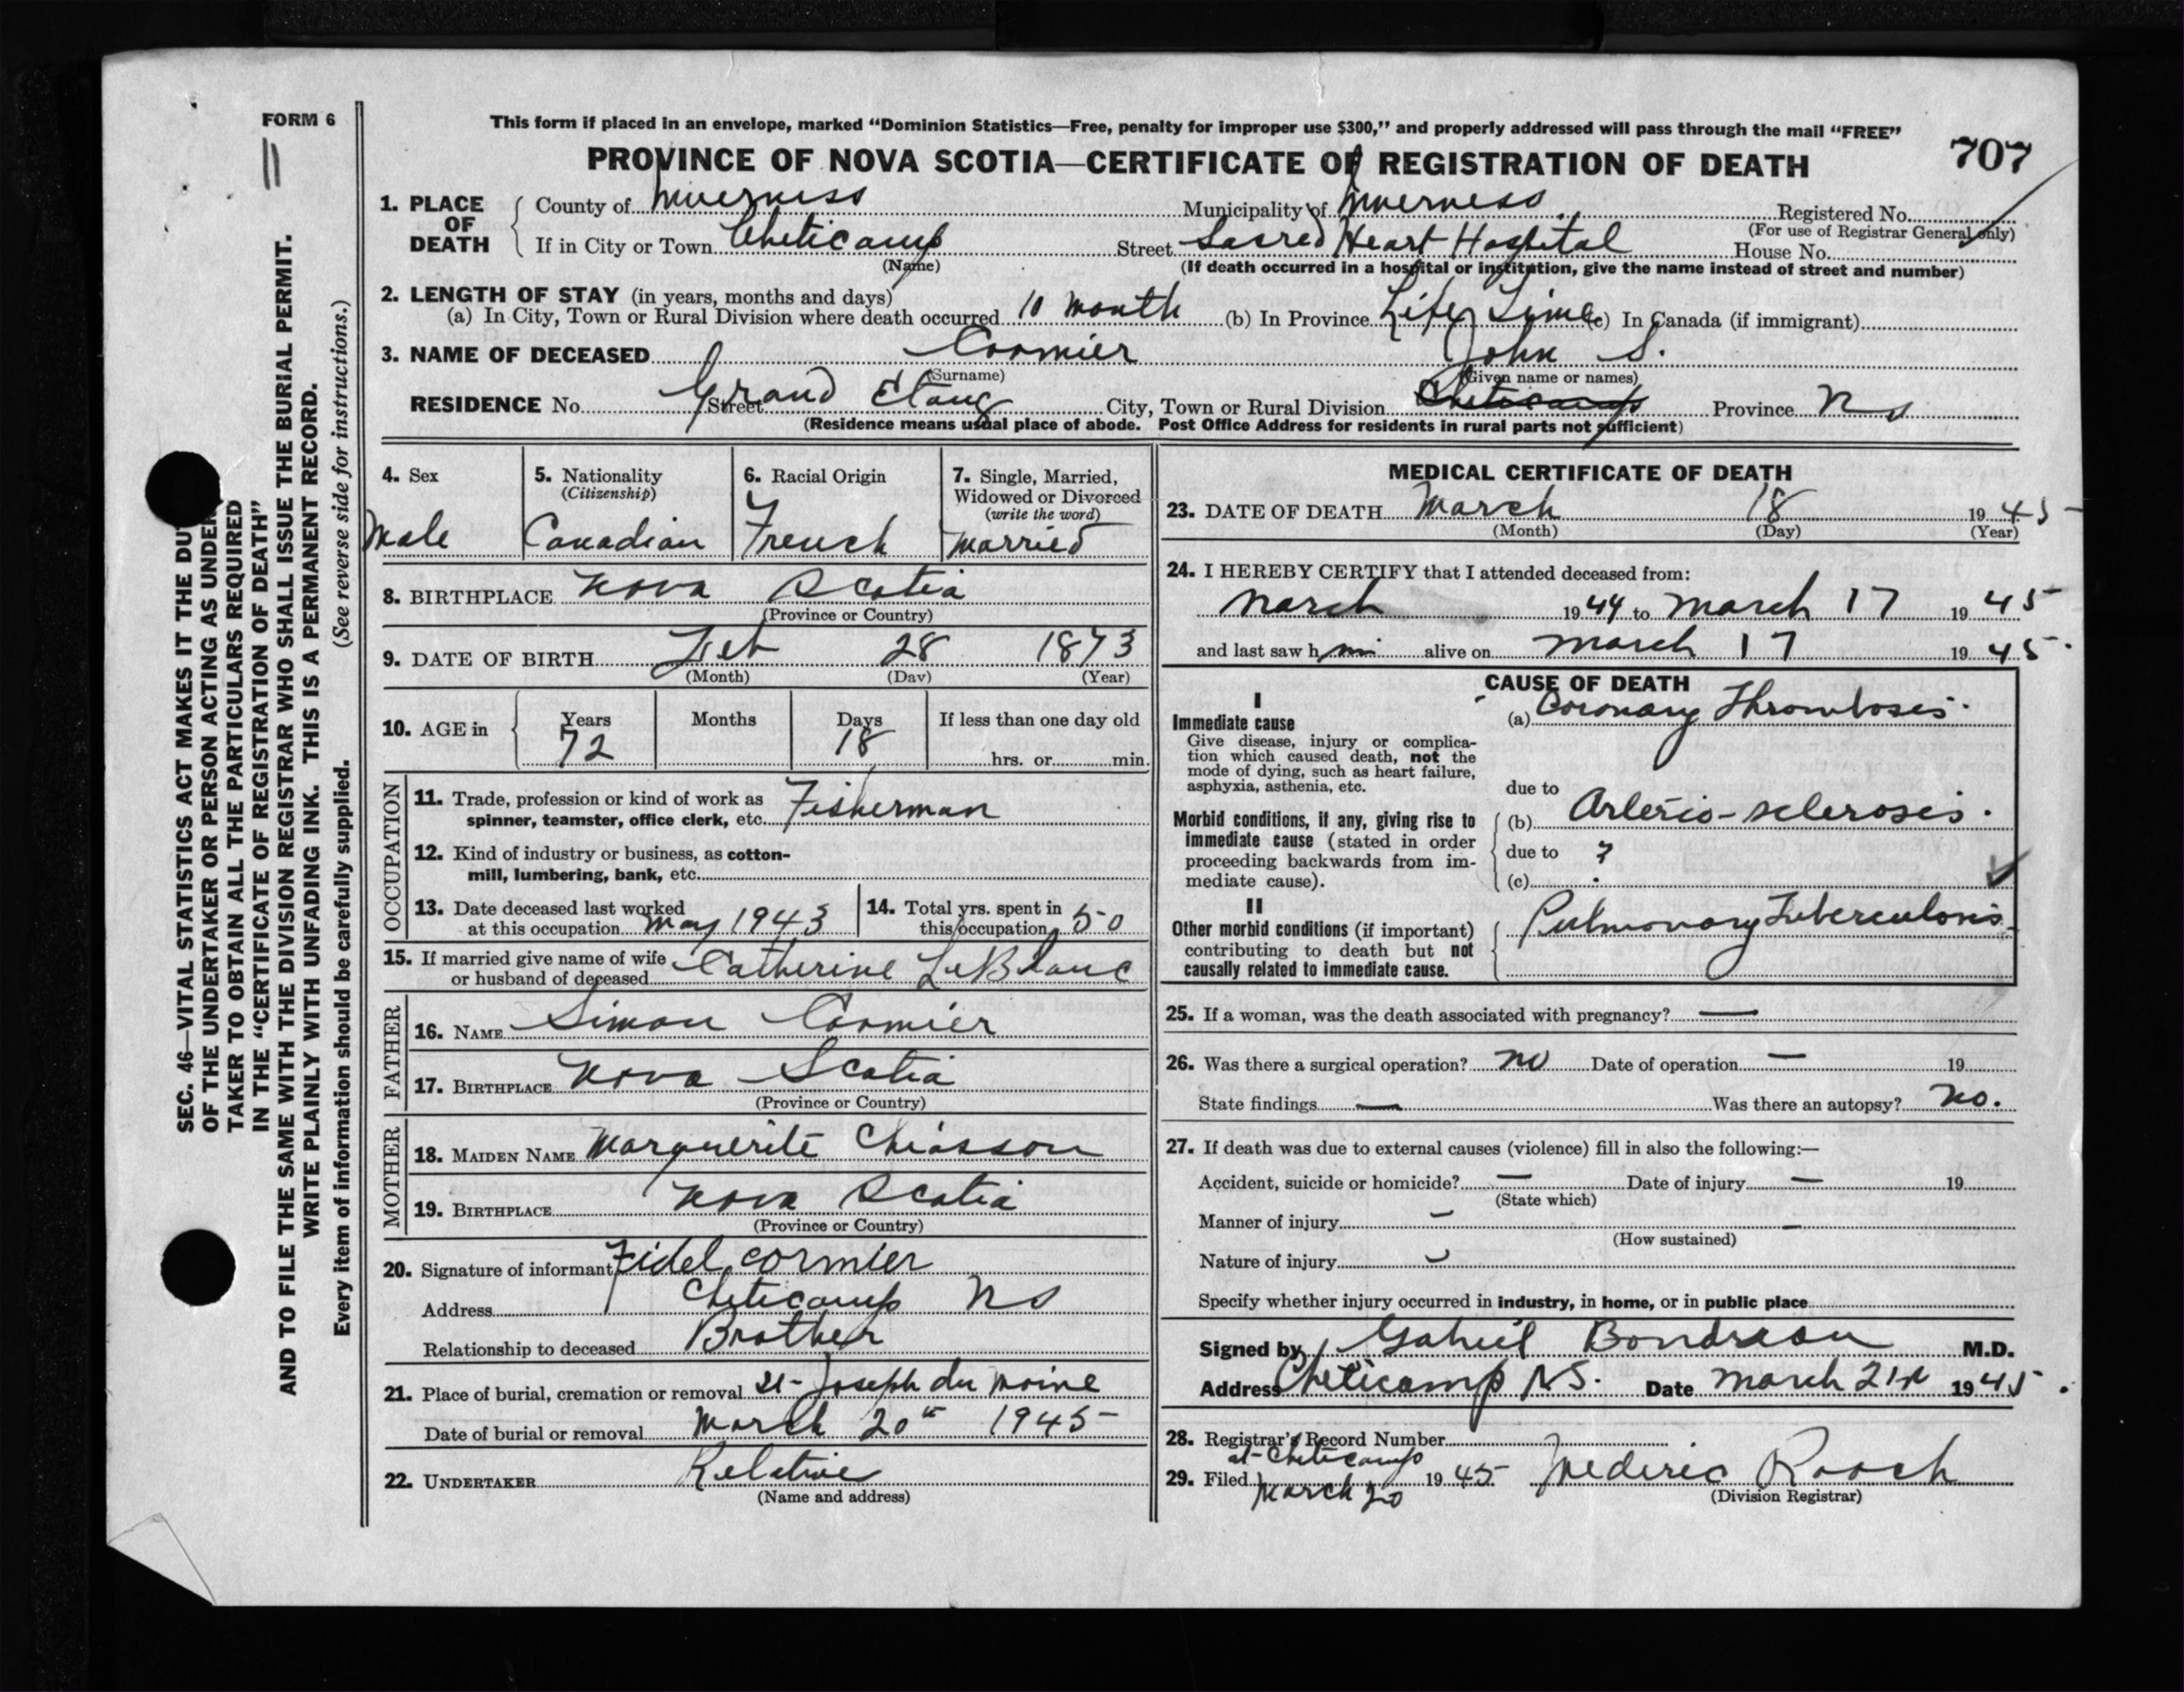 FORM 6
11
This form if placed in an envelope, marked “Dominion Statistics—Free, penalty for improper use $300,” and properly addressed will pass through the mail “FREE”
707
PROVINCE OF NOVA SCOTIA—CERTIFICATE OF REGISTRATION OF DEATH
1. PLACE OF DEATH
County of Inverness Municipality of Inverness Registered No.
(For use of Registrar General only)
If in City or Town Cheticamp Street Sacred Heart Hospital House No.
(Name) (If death occurred in a hospital or institution, give the name instead of street and number)
2. LENGTH OF STAY (in years, months and days)
(a) In City, Town or Rural Division where death occurred 10 month (b) In Province Life Time (c) In Canada (if immigrant)
3. NAME OF DECEASED Cormier John S.
(Surname) (Given name or names)
RESIDENCE No. Street Grand Etang City, Town or Rural Division Cheticamp Province NS
(Residence means usual place of abode. Post Office Address for residents in rural parts not sufficient)
4. Sex
Male
5. Nationality
(Citizenship)
Canadian
6. Racial Origin
French
7. Single, Married, Widowed or Divorced
(write the word)
Married
8. BIRTHPLACE Nova Scotia
(Province or Country)
9. DATE OF BIRTH Feb 28 1873
(Month) (Day) (Year)
10. AGE in Years Months Days If less than one day old
72 18 hrs. or min.
OCCUPATION
11. Trade, profession or kind of work as
spinner, teamster, office clerk, etc. Fisherman
12. Kind of industry or business, as cotton-
mill, lumbering, bank, etc.
13. Date deceased last worked
at this occupation May 1943
14. Total yrs. spent in
this occupation 50
15. If married give name of wife
or husband of deceased Catherine LeBlanc
FATHER
16. NAME Simon Cormier
17. BIRTHPLACE Nova Scotia
(Province or Country)
MOTHER
18. MAIDEN NAME Marguerite Chiasson
19. BIRTHPLACE Nova Scotia
(Province or Country)
20. Signature of informant Fidel Cormier
Address Cheticamp NS
Relationship to deceased Brother
21. Place of burial, cremation or removal St-Joseph du Moine
Date of burial or removal March 20th 1945
22. UNDERTAKER Relative
(Name and address)
MEDICAL CERTIFICATE OF DEATH
23. DATE OF DEATH March 18 1945
(Month) (Day) (Year)
24. I HEREBY CERTIFY that I attended deceased from:
March 1944 to March 17 1945
and last saw him alive on March 17 1945.
CAUSE OF DEATH
I
Immediate cause
Give disease, injury or complica-
tion which caused death, not the
mode of dying, such as heart failure,
asphyxia, asthenia, etc.
(a) Coronary Thrombosis.
due to
Morbid conditions, if any, giving rise to
immediate cause (stated in order
proceeding backwards from im-
mediate cause).
(b) Arterio-sclerosis.
due to ?
(c)
II
Other morbid conditions (if important)
contributing to death but not
causally related to immediate cause.
Pulmonary Tuberculosis
25. If a woman, was the death associated with pregnancy? —
26. Was there a surgical operation? no Date of operation — 19
State findings — Was there an autopsy? No.
27. If death was due to external causes (violence) fill in also the following:—
Accident, suicide or homicide? — Date of injury — 19
(State which)
Manner of injury —
(How sustained)
Nature of injury
Specify whether injury occurred in industry, in home, or in public place
Signed by Gabriel Boudreau M.D.
Address Cheticamp N.S. Date March 21st 1945.
28. Registrar's Record Number
29. Filed at Cheticamp March 20 1945 Mederic Roach
(Division Registrar)
SEC. 46—VITAL STATISTICS ACT MAKES IT THE DU
OF THE UNDERTAKER OR PERSON ACTING AS UNDER
TAKER TO OBTAIN ALL THE PARTICULARS REQUIRED
IN THE “CERTIFICATE OF REGISTRATION OF DEATH”
AND TO FILE THE SAME WITH THE DIVISION REGISTRAR WHO SHALL ISSUE THE BURIAL PERMIT.
WRITE PLAINLY WITH UNFADING INK. THIS IS A PERMANENT RECORD.
Every item of information should be carefully supplied. (See reverse side for instructions.)